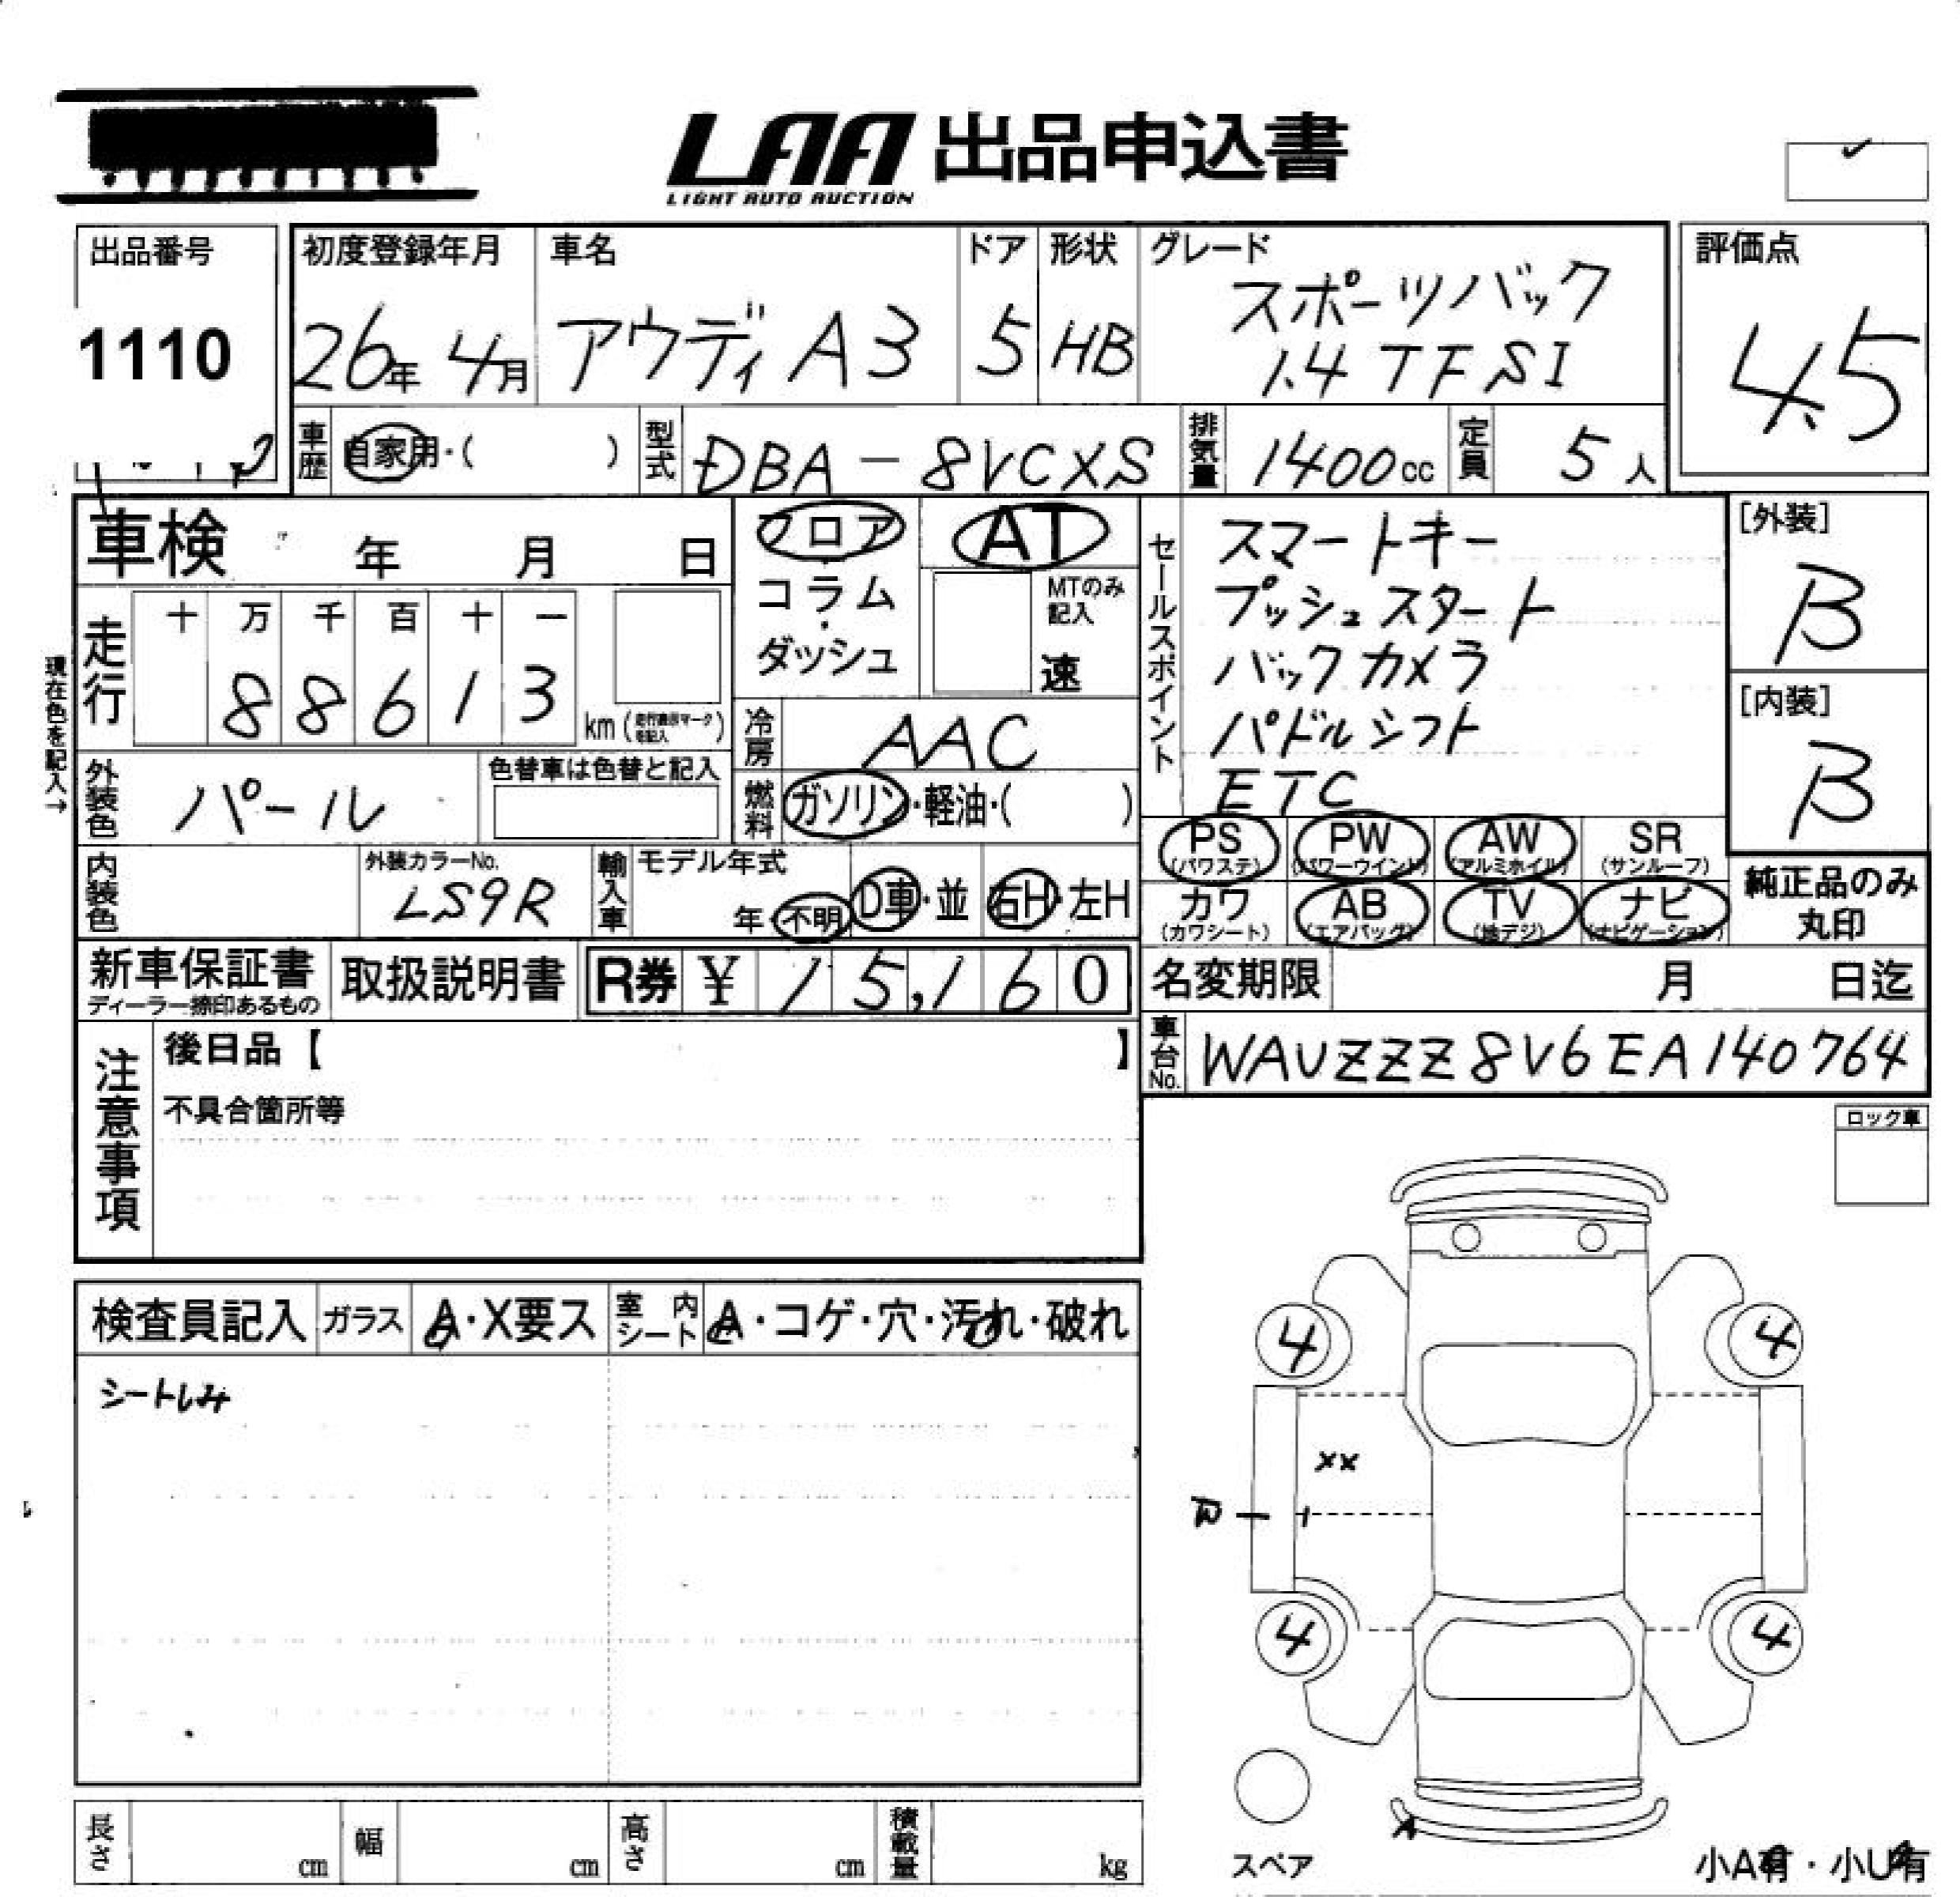 LAA 出品申込書
LIGHT AUTO AUCTION
出品番号
1110
初度登録年月
26年 4月
車名
アウディ A3
ドア
5
形状
HB
グレード
スポーツバック
1.4 TFSI
評価点
4.5
車歴
自家用・( )
型式
DBA-8VCXS
排気量
1400cc
定員
5人
車検 年 月 日
フロア・コラム・ダッシュ
AT
MTのみ記入
速
セールスポイント
スマートキー
プッシュスタート
バックカメラ
パドルシフト
ETC
[外装]
B
[内装]
B
現在色を記入→
走行
十 万 千 百 十 一
8 8 6 1 3
km(走行表示マークを記入)
冷房
AAC
外装色
パール
色替車は色替と記入
燃料
ガソリン・軽油・( )
PS (パワステ)
PW (パワーウインド)
AW (アルミホイル)
SR (サンルーフ)
カワ (カワシート)
AB (エアバッグ)
TV (地デジ)
ナビ (ナビゲーション)
純正品のみ丸印
内装色
外装カラーNo.
LS9R
輸入車
モデル年式
年・不明
D車・並
右H・左H
新車保証書
ディーラー捺印あるもの
取扱説明書
R券 ¥ 15,160
名変期限 月 日迄
車台No.
WAUZZZ8V6EA140764
注意事項
後日品【 】
不具合箇所等
ロック車
検査員記入
ガラス
A・X要ス
室内シート
A・コゲ・穴・汚れ・破れ
シートしみ
4
4
XX
W
4
4
A
スペア
小A有・小U有
長さ cm
幅 cm
高さ cm
積載量 kg